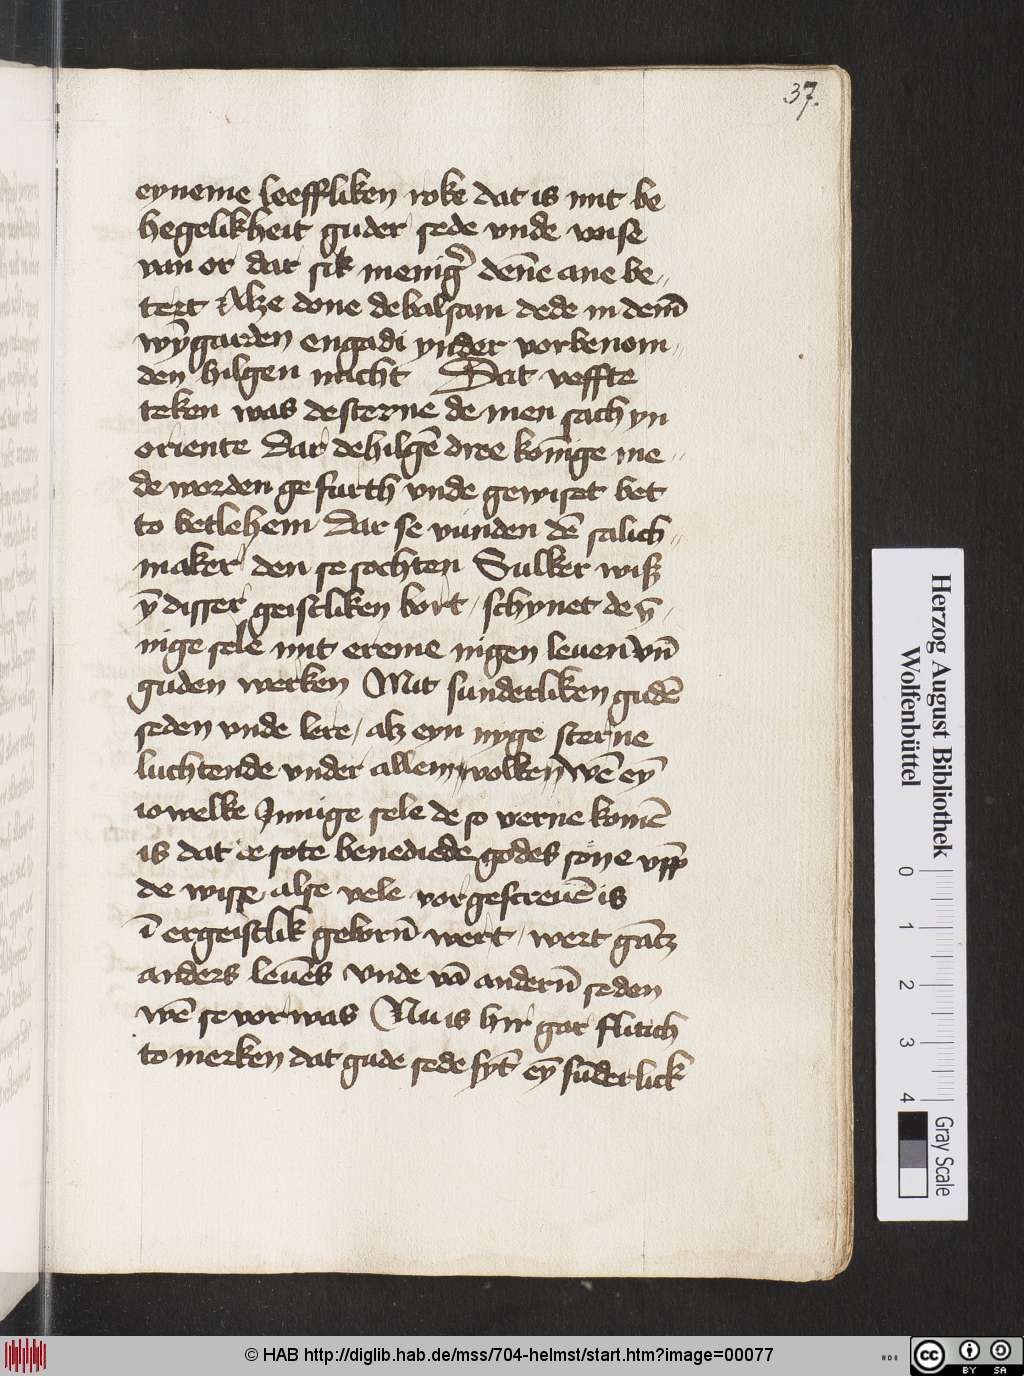 37.
eyneme leeffliken roke dat is mit be
hegelikheit guder sede vnde wise
van or dar sik menig᷎ den̄e ane be„
tert Alze done de balsam dede in dem̄
wȳgarden engadi yn der vorbenom„
den hilgen nacht Dat veffte
teken was de sterne de men sach yn
oriente Dar de hilgē dree kon̄ige me„
de worden gefurth vnde gewiset bet
to betlehem Dar se vunden dē salich„
maker den se sochten Sulker wisz
ȳ disser geistliken bort / schynet de ȳ„
nige sele mit ereme nigen leuen vn̄
guden werken Mit sunderliken gudē
seden vnde lere / alz eyn nyge sterne
luchtende vnder allem wolken wē eȳ
iowelke Innige sele de so verne komē
is dat ihesus de sote benediede godes sone vpp
de wisse alse vele vorgescreuē is
ī er geistlik geborn̄ wert / wert gācz
anders leuēs vnde vā andern̄ seden
wē se vor was Nu is hir gar flitich
to merken dat gude sede synt eȳ sūderlick
Herzog August Bibliothek
Wolfenbüttel
0 1 2 3 4
Gray Scale
© HAB http://diglib.hab.de/mss/704-helmst/start.htm?image=00077
HAB
cc BY SA